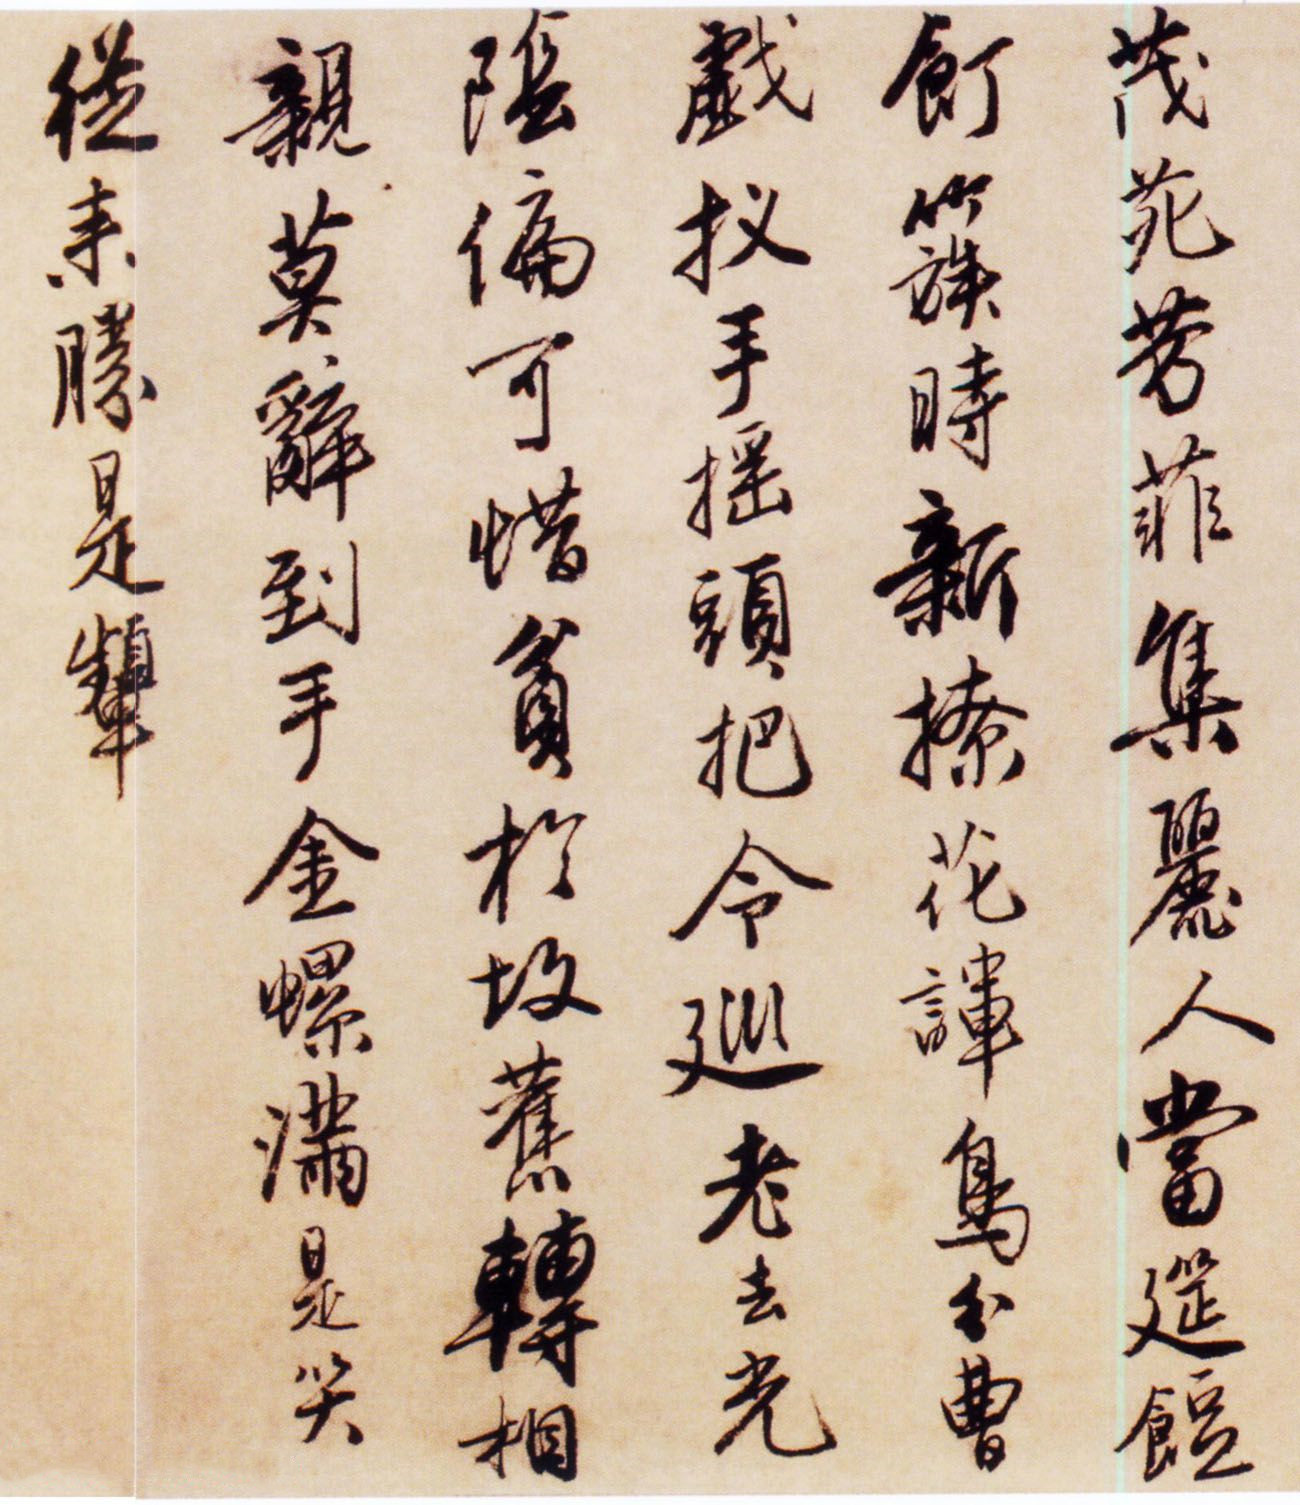 茂苑芳菲集麗人當筵餖
飣簇時新撩花諢鳥分曹
戲扠手搖頭把令巡老去光
陰偏可惜貧於故舊轉相
親莫辭到手金螺滿是笑
從來勝是顰